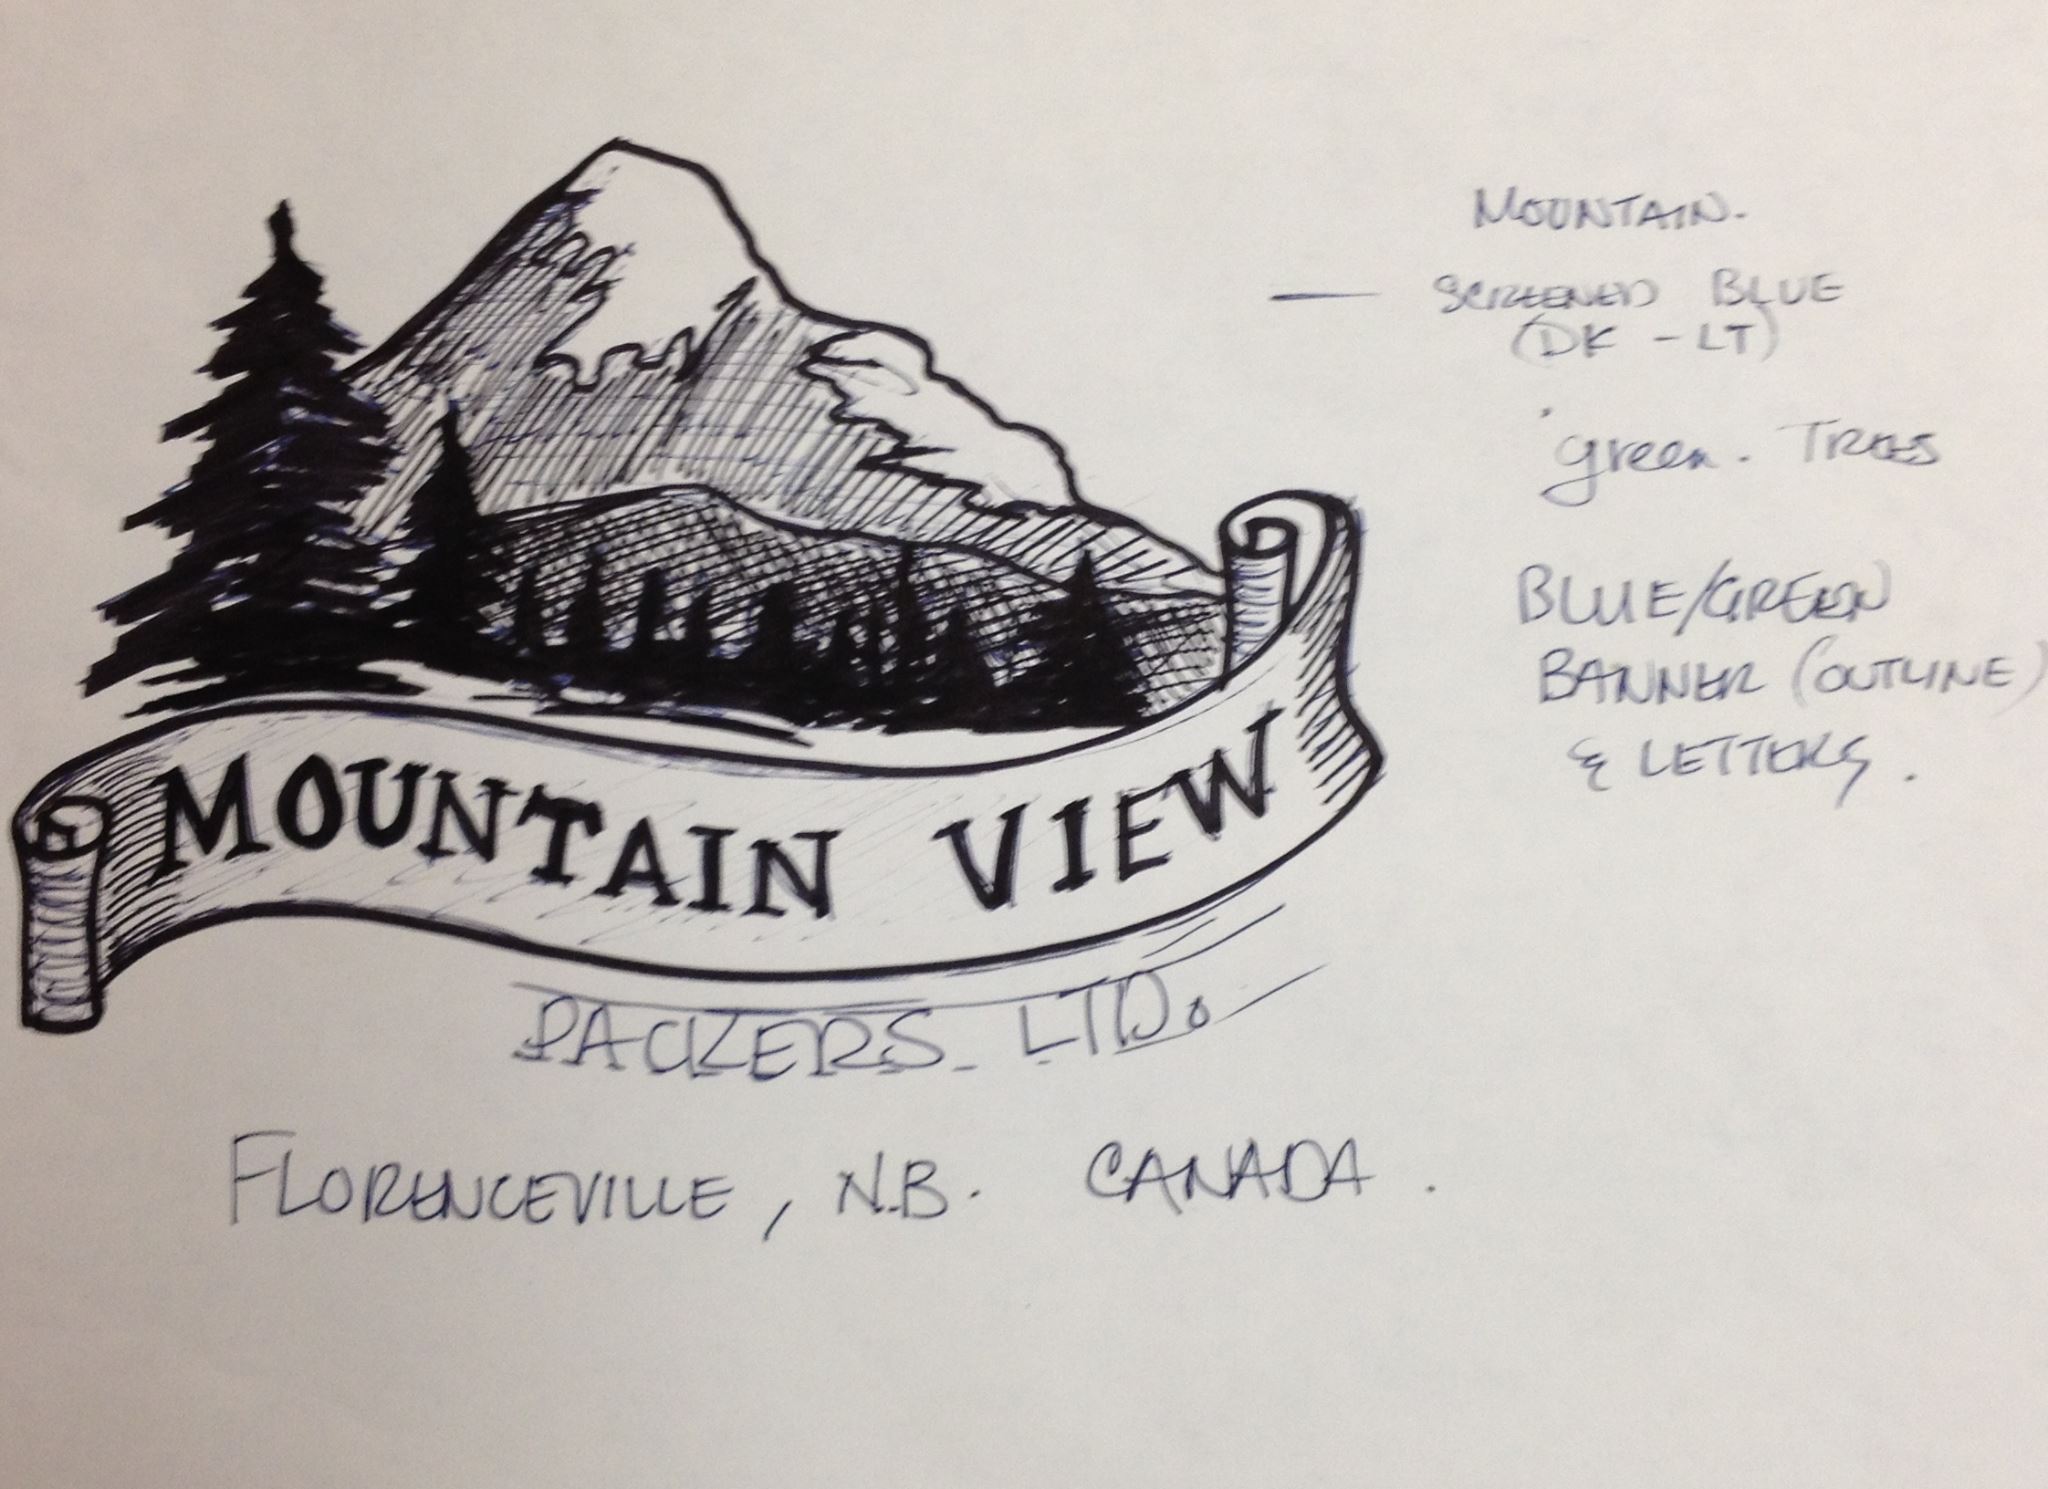 MOUNTAIN VIEW
PACKERS LTD.
FLORENCEVILLE, N.B. CANADA.
MOUNTAIN.
— SCREENED BLUE
(DK - LT)
green. TREES
BLUE/GREEN
BANNER (OUTLINE)
& LETTERS.